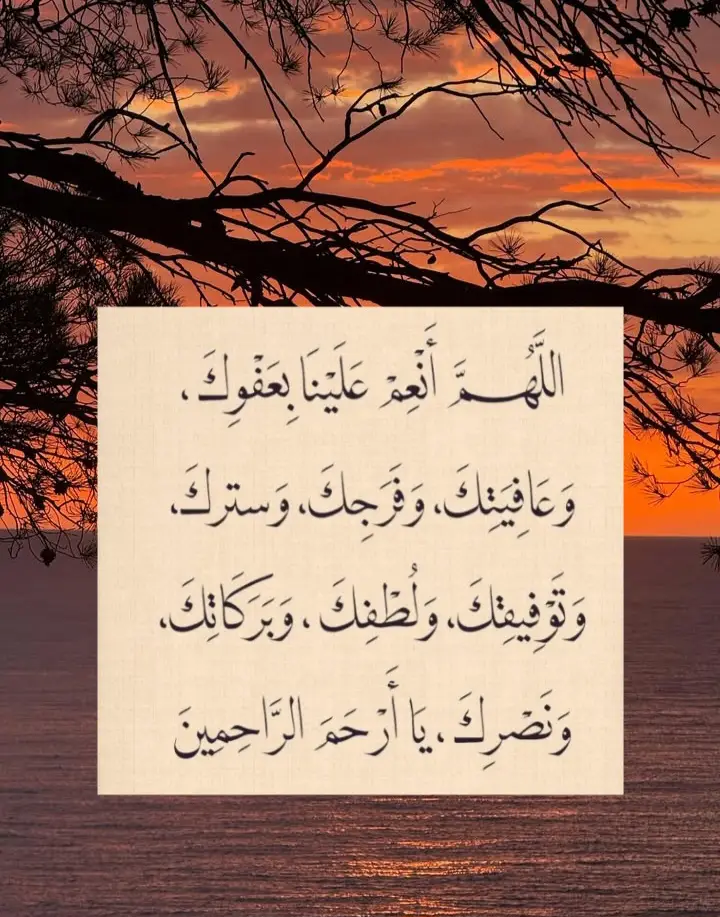 اللَّهُمَّ أَنْعِمْ عَلَيْنَا بِعَفْوِكَ،
وَعَافِيَتِكَ، وَفَرَجِكَ، وَسترِكَ،
وَتَوْفِيقِكَ، وَلُطْفِكَ، وَبَرَكَاتِكَ،
وَنَصْرِكَ، يَا أَرْحَمَ الرَّاحِمِينَ